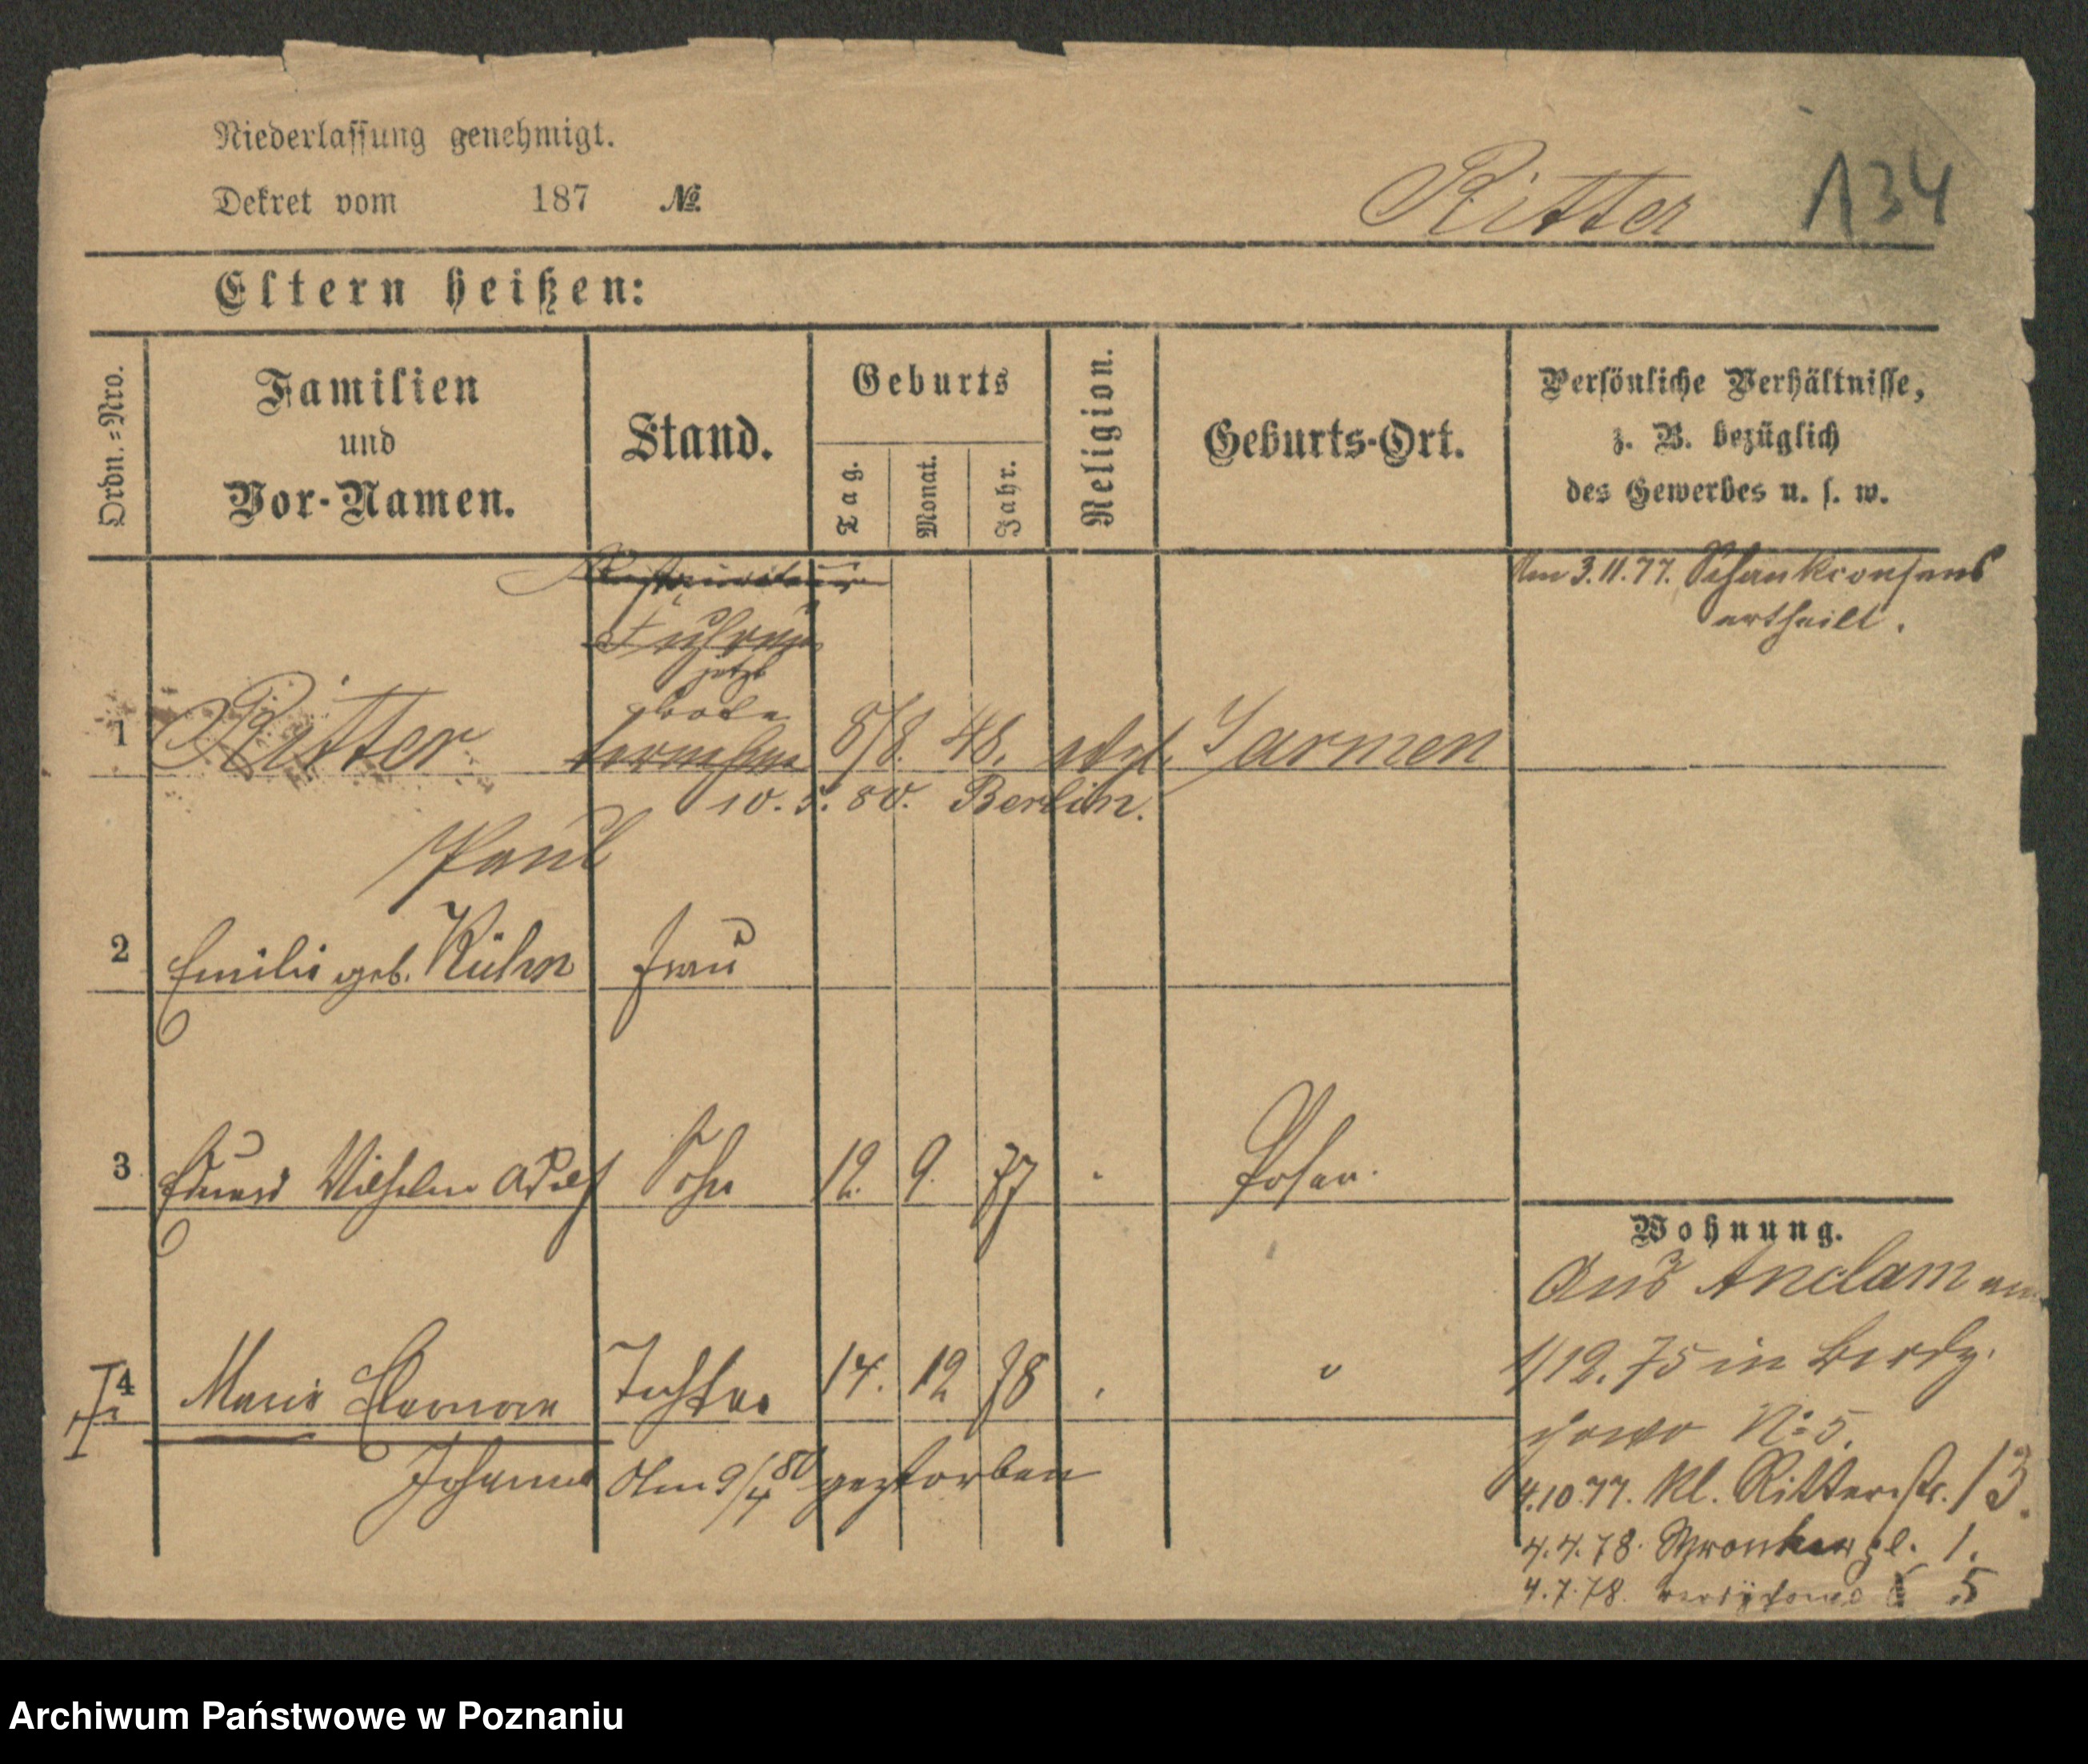 Niederlassung genehmigt.
Dekret vom 187 №
Ritter 134
Eltern heißen:
Ordn.=Nro.
Familien
und
Vor-Namen.
Stand.
Geburts
Tag.
Monat.
Jahr.
Religion.
Geburts-Ort.
Persönliche Verhältnisse,
z. B. bezüglich
des Gewerbes u. s. w.
Am 3.11.77. Schankconsens
ertheilt.
jetzt
1 Ritter 8/8. 48. Jarmen
10. 5. 80. Berlin.
Paul
2 Emilie geb. Kühn Frau
3 Eduard Wilhelm Adolf Sohn 12. 9. 77 Posen.
Wohnung.
Aus Anclam
4 Marie Eleonore Tochter 14. 12 78 "
Johanna Am 9/4 80 gestorben
1/12. 75 in Berdy-
chowo No 5.
4.10.77. Kl. Ritterstr. 13.
4.4.78. Wronker pl. 1.
4.7.78. Berdychowo 5